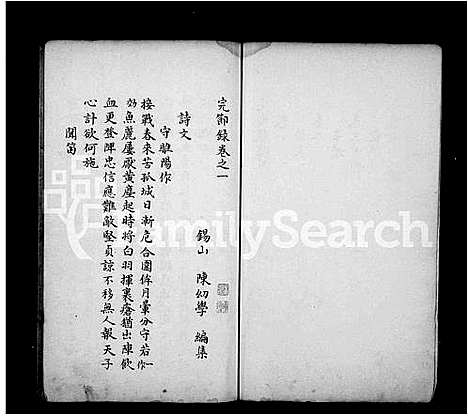 完節録卷之一
錫山 陳幼學 編集
詩文
守睢陽作
接戰春來苦孤城日漸危合圍侔月暈分守若一作
效魚麗屢厭黃塵起時將白羽揮裹瘡猶出陣飲
血更登陴忠信應難敵堅貞諒不移無人報天子
心計欲何施
聞笛
FamilySearch